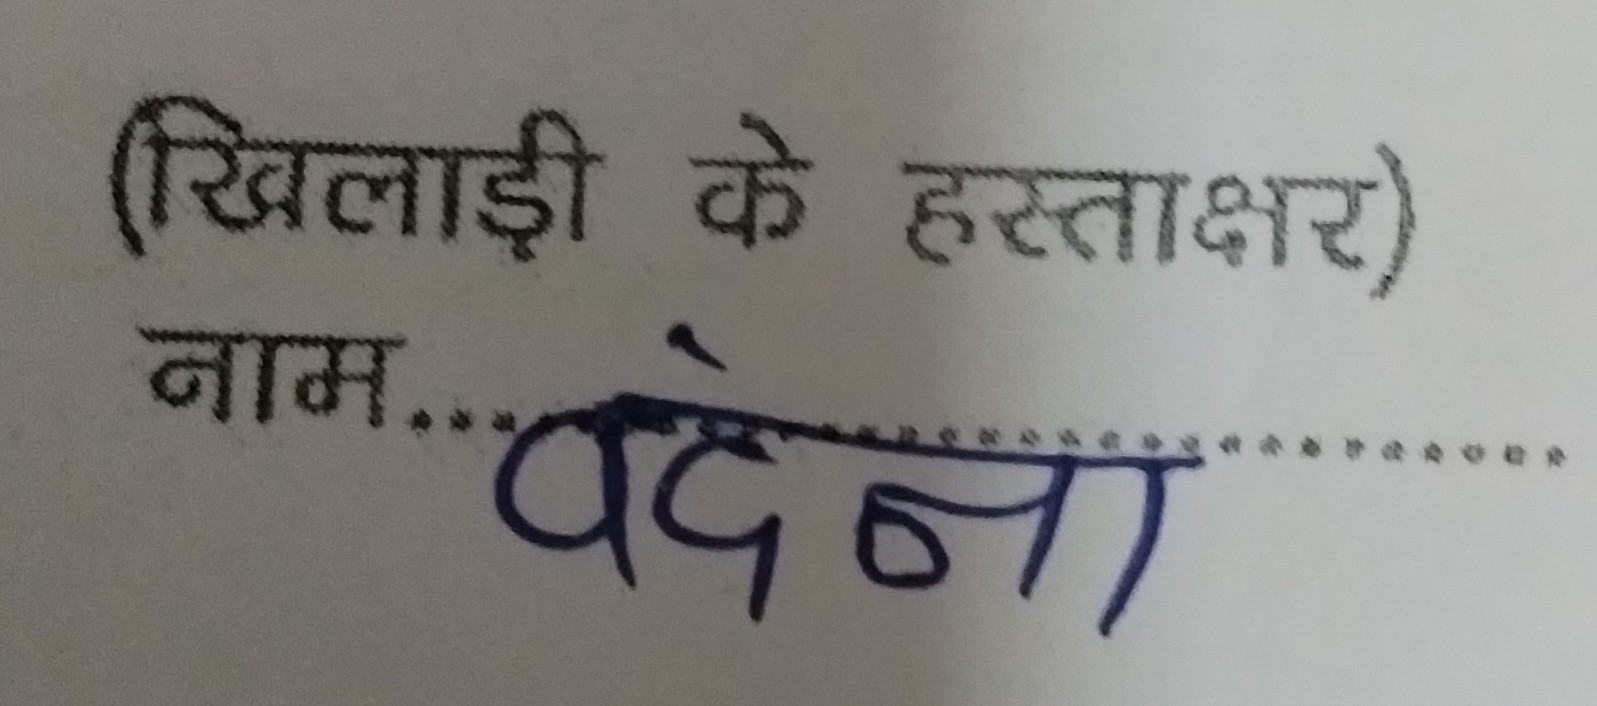 (खिलाड़ी के हस्ताक्षर)
नाम....वंदना.......................